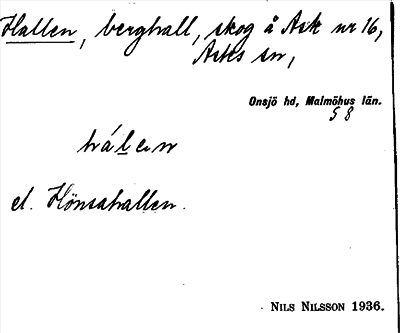 Hallen, berghall, skog å Ask nr 16,
Asks sn,
Onsjö hd, Malmöhus län.
58
hálen
el. Hönsahallen.
NILS NILSSON 1936.